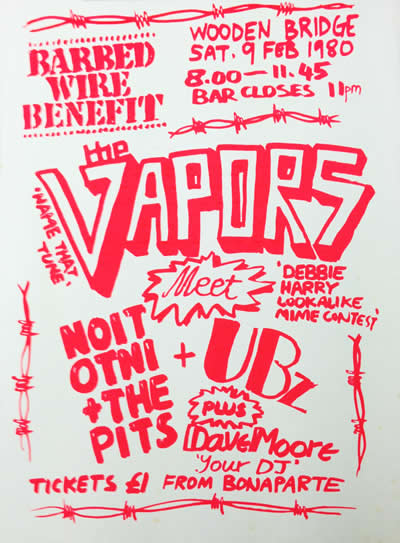 BARBED
WIRE
BENEFIT
WOODEN BRIDGE
SAT. 9 FEB 1980
8.00 — 11.45
BAR CLOSES 11pm
the
VAPORS
'NAME THAT
TUNE'
Meet
'DEBBIE
HARRY
LOOKALIKE
MIME CONTEST'
NOIT
OTNI
+ THE
PITS
+ UBZ
PLUS
Dave Moore
'Your DJ'
TICKETS £1 FROM BONAPARTE